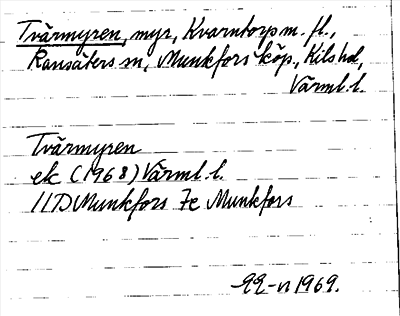 Tvärmyren, myr, Kvarntorp m. fl.,
Ransäters sn, Munkfors köp., Kils hd,
Värml. l.
Tvärmyren
ek (1968) Värml. l.
11D Munkfors 7c Munkfors
1969.